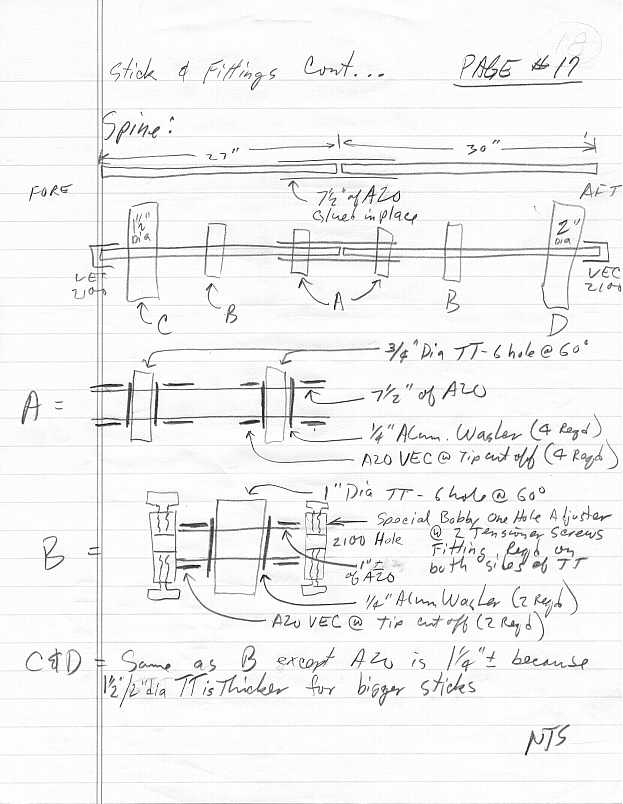 18
Stick & Fittings Cont... PAGE #17
Spine:
27" 30"
FORE AFT
7½" of A20
Glued in place
1½" Dia
2" Dia
VEC 2100
VEC 2100
C B A B D
3/4" Dia TT-6 hole @ 60°
A =
7½" of A20
¼" Alum. Washer (4 Reqd)
A20 VEC @ Tip cut off (4 Reqd)
1" Dia TT - 6 hole @ 60°
B =
Special Bobby One Hole Adjuster
2100 Hole @ 2 Tensioner Screws
Fitting Reqd on
both sides of TT
1" ± of A20
¼" Alum Washer (2 Reqd)
A20 VEC @ Tip cut off (2 Reqd)
C&D = Same as B except A20 is 1¼" ± because
1½"/2" dia TT is Thicker for bigger sticks
NTS